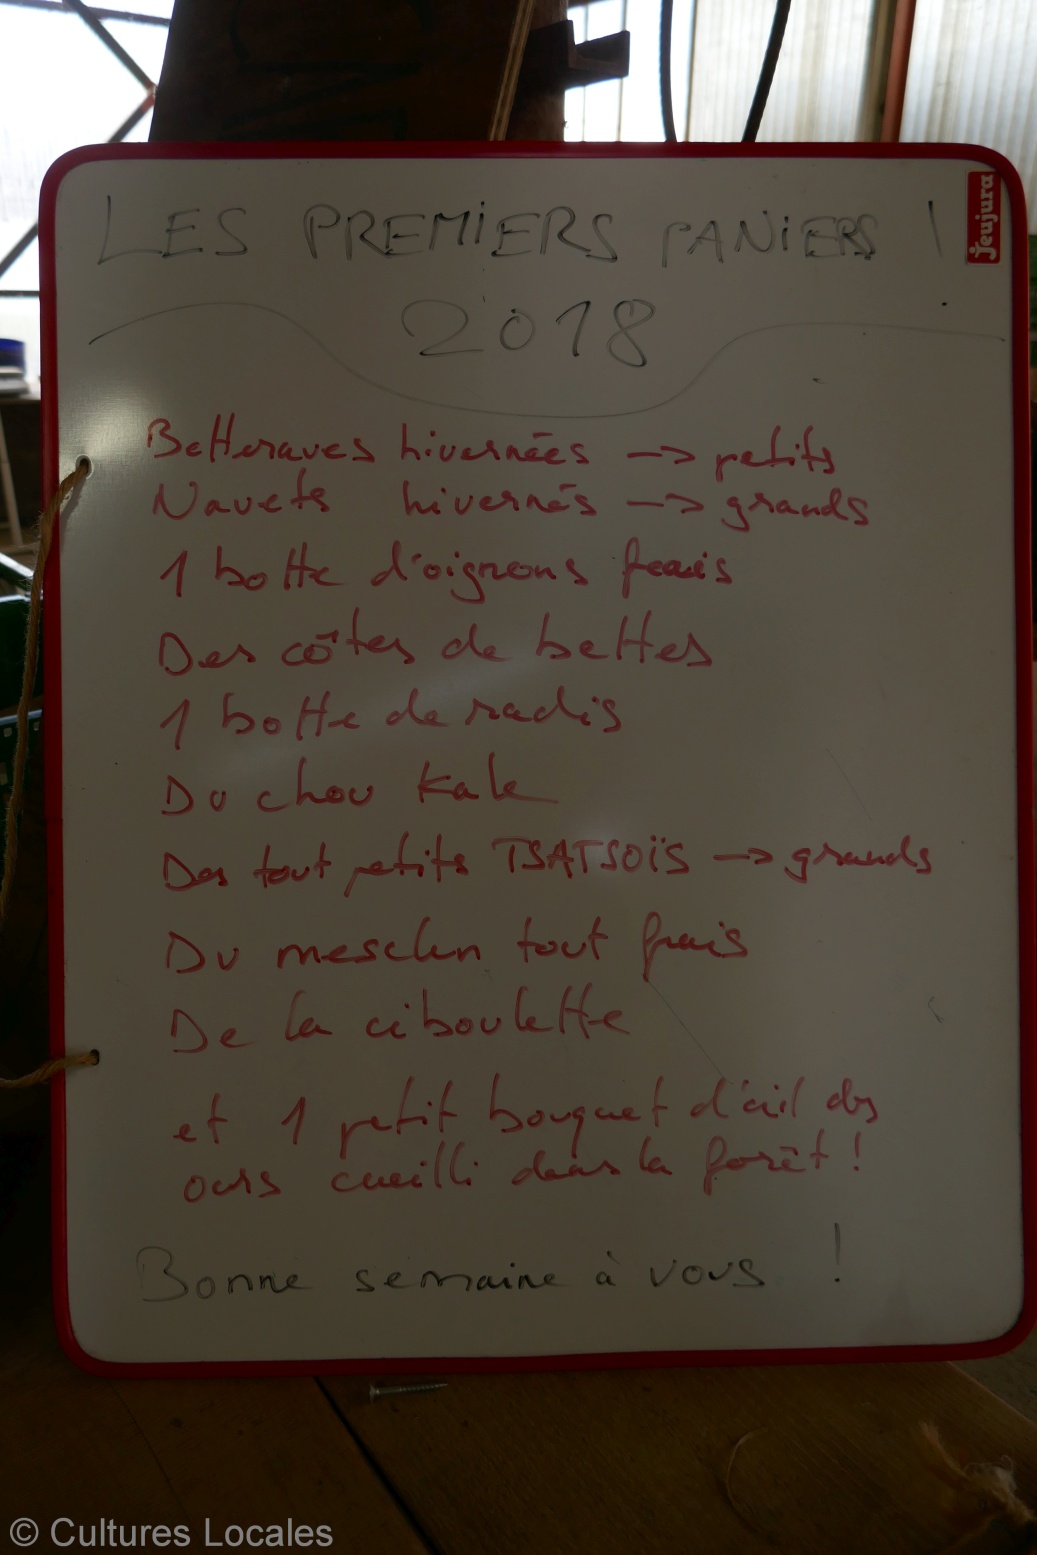 LES PREMiERS PANiERS !
Jeujura
2018
Betteraves hivernées -> petits
Navets hivernés -> grands
1 botte d'oignons frais
Des côtes de bettes
1 botte de radis
Du chou Kale
Des tout petits TSATSOÏS -> grands
Du mesclun tout frais
De la ciboulette
et 1 petit bouquet d'ail des
ours cueilli dans la forêt !
Bonne semaine à vous !
© Cultures Locales